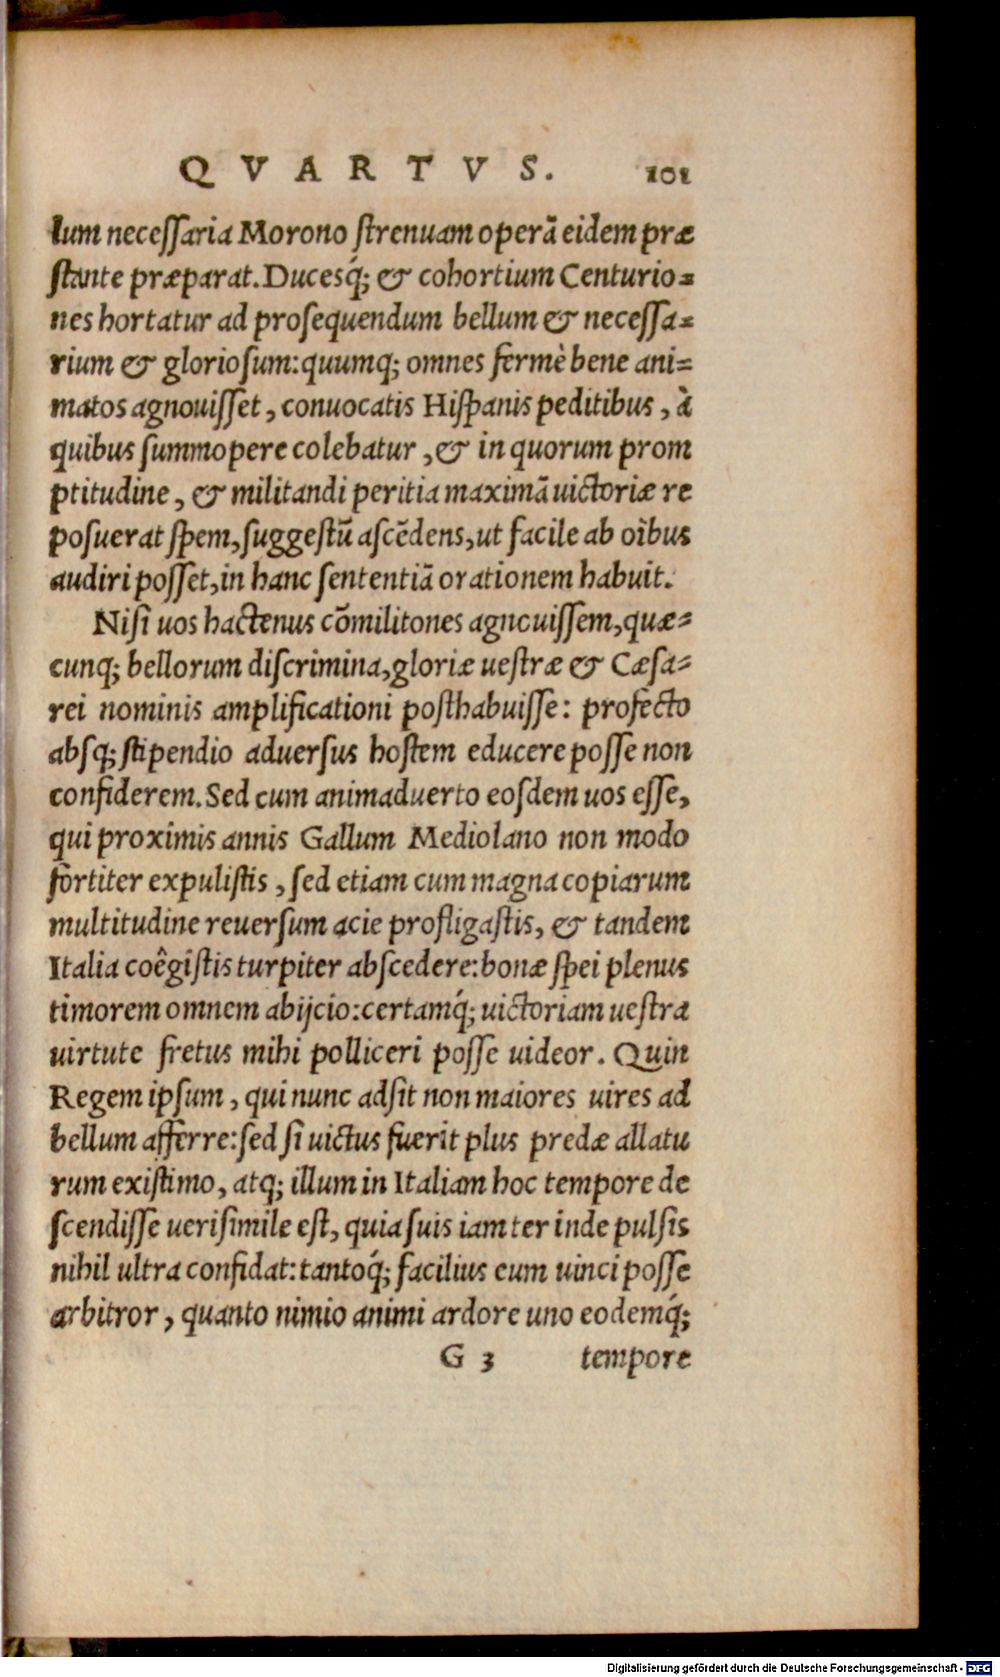 QVARTVS. 101
lum necessaria Morono strenuam operā eidem præ
stante præparat. Ducesq́; & cohortium Centurio=
nes hortatur ad prosequendum bellum & necessa=
rium & gloriosum: quumq; omnes fermè bene ani=
matos agnouisset, conuocatis Hispanis peditibus, à
quibus summopere colebatur, & in quorum prom
ptitudine, & militandi peritia maximā uictoriæ re
posuerat spem, suggestū ascēdens, ut facile ab oībus
audiri posset, in hanc sententiā orationem habuit.
Nisi uos hactenus cōmilitones agnouissem, quæ=
cunq; bellorum discrimina, gloriæ uestræ & Cæsa=
rei nominis amplificationi posthabuisse: profecto
absq; stipendio aduersus hostem educere posse non
confiderem. Sed cum animaduerto eosdem uos esse,
qui proximis annis Gallum Mediolano non modo
fortiter expulistis, sed etiam cum magna copiarum
multitudine reuersum acie profligastis, & tandem
Italia coêgistis turpiter abscedere: bonæ spei plenus
timorem omnem abijcio: certamq́; uictoriam uestra
uirtute fretus mihi polliceri posse uideor. Quin
Regem ipsum, qui nunc adsit non maiores uires ad
bellum afferre: sed si uictus fuerit plus predæ allatu
rum existimo, atq; illum in Italiam hoc tempore de
scendisse uerisimile est, quia suis iam ter inde pulsis
nihil ultra confidat: tantoq́; facilius eum uinci posse
arbitror, quanto nimio animi ardore uno eodemq́;
G 3 tempore
Digitalisierung gefördert durch die Deutsche Forschungsgemeinschaft - DFG